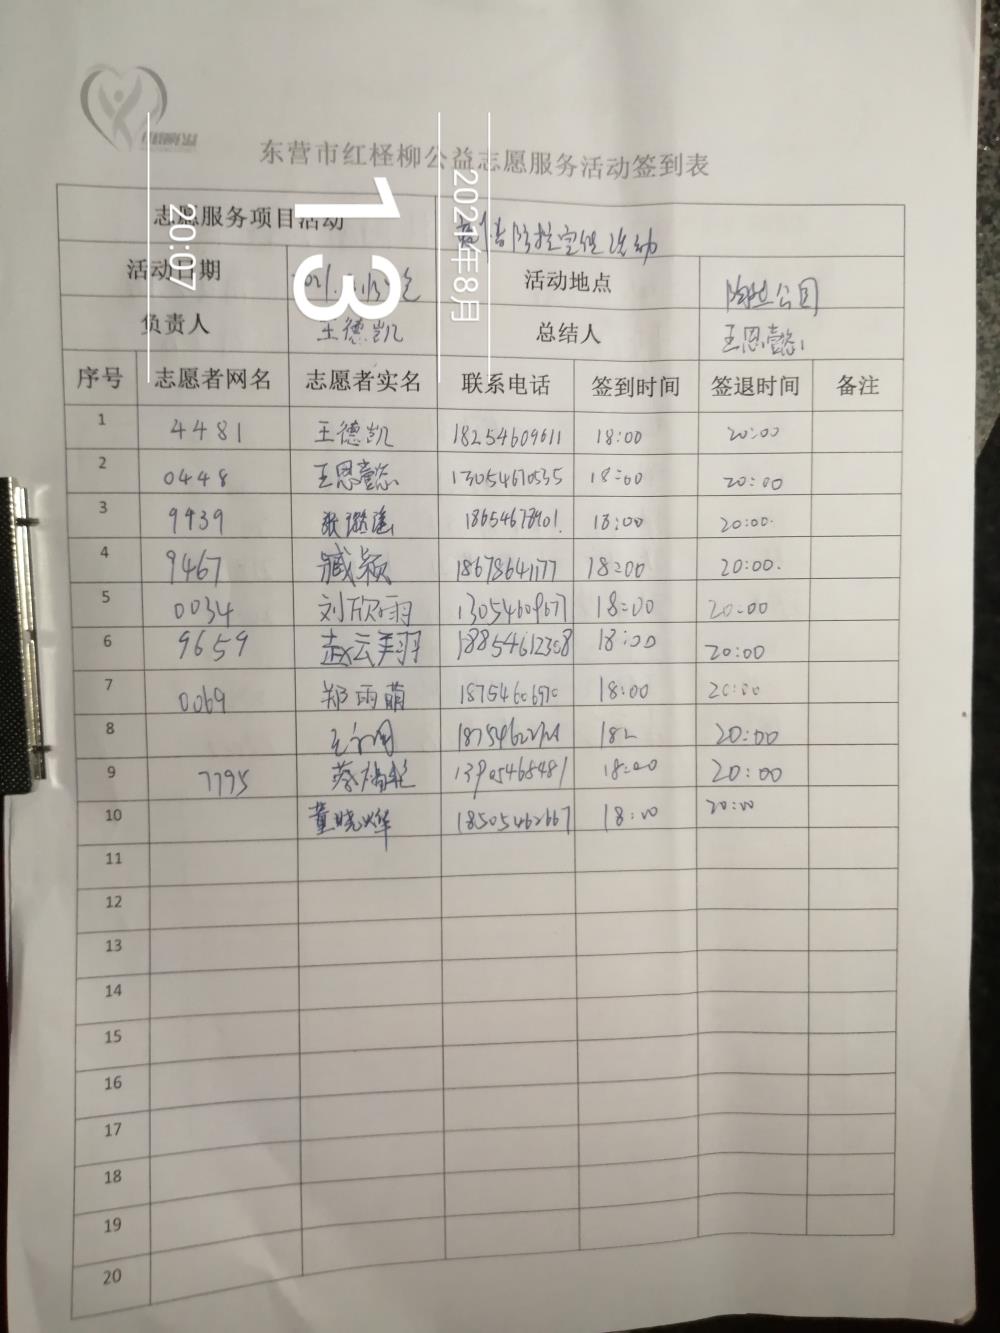 东营市红柽柳公益志愿服务活动签到表
志愿服务项目活动 疫情防控宣传活动
活动日期 活动地点 公园
负责人 王德凯 总结人 王恩懿
序号 志愿者网名 志愿者实名 联系电话 签到时间 签退时间 备注
1 4481 王德凯 18254609611 18:00 20:00
2 0448 王恩懿 13054670535 18:00 20:00
3 9439 张璐瑶 18654678901 18:00 20:00.
4 9467 臧颖 18678641177 18:00 20:00.
5 0034 刘欣雨 13054609677 18:00 20:00
6 9659 赵云翔 18854612308 18:00 20:00
7 0069 郑雨萌 18754606970 18:00 20:00
8 20:00
9 7795 蔡 13905468481 18:00 20:00
10 董晓烨 18505462667 18:00 20:00
11
12
13
14
15
16
17
18
19
20
2021年8月
13
20:07